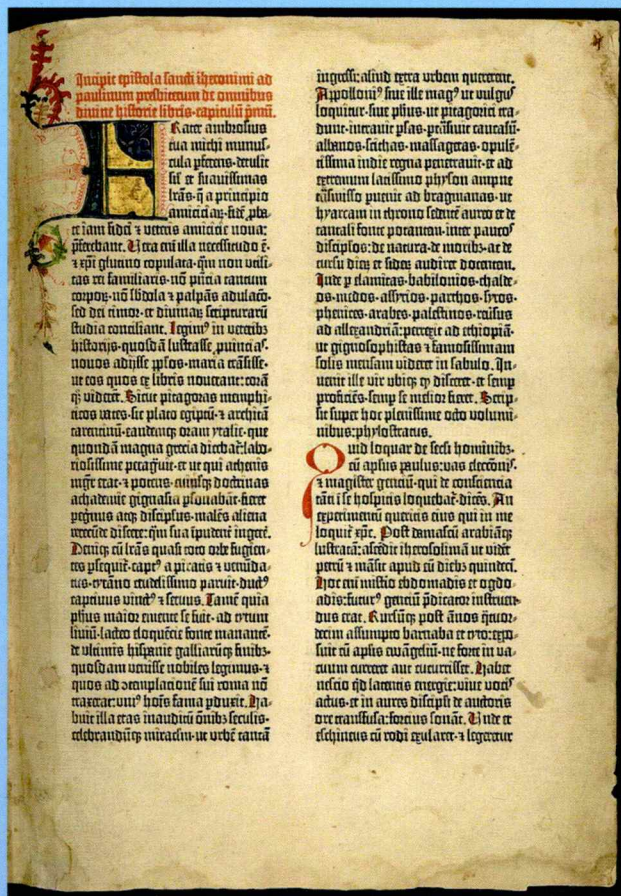 Incipit epistola sancti iheronimi ad
paulinum presbiterum de omnibus
divine historie libris. capitulũ pⁱmũ.
Frater ambrosius
tua michi munus-
cula ꝑferens. detulit
sil̃ et suavissimas
lr̃as. q̃ a principio
amicicia⁊ fidẽ ꝓba-
te iam fidei ⁊ veteris amicicie nova:
p̃ferebant. Vera eñi illa necessitudo ẽ.
⁊ xp̃i glutino copulata. qm̃ non utili-
tas rei familiaris. nõ p̃ncia tantum
corpoꝝ. nõ sb̃dola ⁊ palpãs adulacõ.
sed dei timor. et divinaꝝ scripturarũ
studia conciliant. Legim⁹ in veteribꝫ
historijs. quosdã lustrasse ꝓuincias.
novos adijsse ppl̃os. maria trãsisse.
ut eos quos ex libris noverant: corã
q̃ꝫ viderẽt. Sicut pitagoras memphi-
ticos vates. sic plato egiptũ ⁊ architã
tarentinũ. eandemqꝫ oram ytalie. que
quondã magna grecia dicebat̃: labo-
riosissime peragravit. et ut qui athenis
mgr̃ erat ⁊ potens. cuiusqꝫ doctrinas
achademie gignasia ꝑsonabãt. fieret
peg̃nus atqꝫ discipl̃us. malẽs aliena
verecũde discere: qm̃ sua ĩpudent̃ ingerẽ.
Deniqꝫ cũ lr̃as quasi toto orbe fugien-
tes ꝑsequit̃. capt⁹ a piratis ⁊ venũda-
tus. tyrãno crudelissimo paruit. duct⁹
captivus vinct⁹ ⁊ servus. Tamẽ quia
ph̃us maior emente se fuit. ad tytum
liviũ. lacteo eloquẽcie fonte manantẽ.
de ultimis hispanie galliarũqꝫ finibꝫ.
quosdam venisse nobiles legimus. ⁊
quos ad ↄtemplacionẽ sui roma nõ
traxerat: uni⁹ hoĩs fama ꝑduxit. Ha-
buit illa etas inauditũ õnibꝫ seculis.
celebrandũqꝫ miracl̃m. ut urbẽ tantã
ingressi: aliud extra urbem quererent.
Appolloni⁹ sive ille mag⁹ ut vulgus
loquitur. sive ph̃us. ut pitagorici tra-
dunt. intravit ꝑsas. ꝑtrãsivit caucasũ.
albanos. scithas. massagetas. opulẽ-
tissima indie regna penetravit. et ad
extremum latissimo physon ampne
trãsmisso ꝑvenit ad bragmanas. ut
hyarcam in throno sedentẽ aureo et de
tantali fonte potantem. inter paucos
discipl̃os: de natura. de moribꝫ. ac de
cursu dieꝝ et sideꝝ audiret docentem.
Inde ꝑ elamitas. babilonios. chalde-
os. medos. assyrios. parthos. syros.
phenices. arabes. palestinos. reversus
ad allexandriã: perrexit ad ethiopiã.
ut gignosophistas ⁊ famosissimam
solis mensam videret in sabulo. In-
venit ille vir ubiqꝫ qꝫ disceret. et semꝑ
proficiẽs. semꝑ se melior fieret. Scrip-
sit super hoc plenissime octo volumi-
nibus: phylostratus.
Quid loquar de secl̃i hominibꝫ.
cũ apl̃us paulus: vas electõis.
⁊ magister genciũ. qui de consciencia
tãti ĩ se hospitis loquebat̃. dicẽs. An
experimentũ queritis eius qui in me
loquit̃ xp̃c. Post damascũ arabiãqꝫ
lustratã: ascẽdit iherosolimã ut vidẽt
petrũ ⁊ mãsit apud eũ diebꝫ quindeci.
Hoc eñi misterio ebdomadis et ogdo-
adis: futur⁹ genciũ p̃dicator instruen-
dus erat. Rursũqꝫ post ãnos q̃tuor-
decim assumpto barnaba et tyto: expo-
suit cũ apl̃is evangeliũ. ne forte in va-
cuum curreret aut cucurrisset. Habet
nescio q̃d latentis energie: vive voci⁹
actus. et in aures discipl̃i de auctoris
ore transfusa: forcius sonãt. Unde et
eschineus cũ rodi exularet. ⁊ legeretur